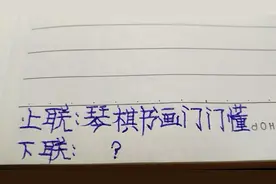 上联:琴棋书画门门懂
下联: ?